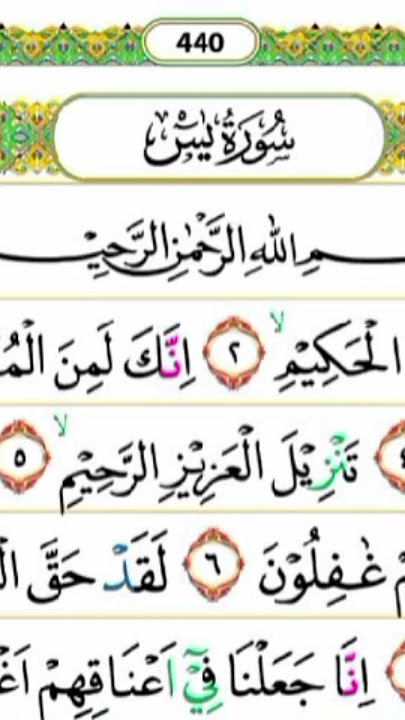 440
سُوْرَةُ يٰسٓ
ـمِ اللهِ الرَّحْمٰنِ الرَّحِيْـ
الْحَكِيْمِ ۙ ٢ اِنَّكَ لَمِنَ الْمُ
تَنْزِيْلَ الْعَزِيْزِ الرَّحِيْمِ ۙ ٥
مْ غٰفِلُوْنَ ٦ لَقَدْ حَقَّ الْ
اِنَّا جَعَلْنَا فِيْٓ اَعْنَاقِهِمْ اَغْ